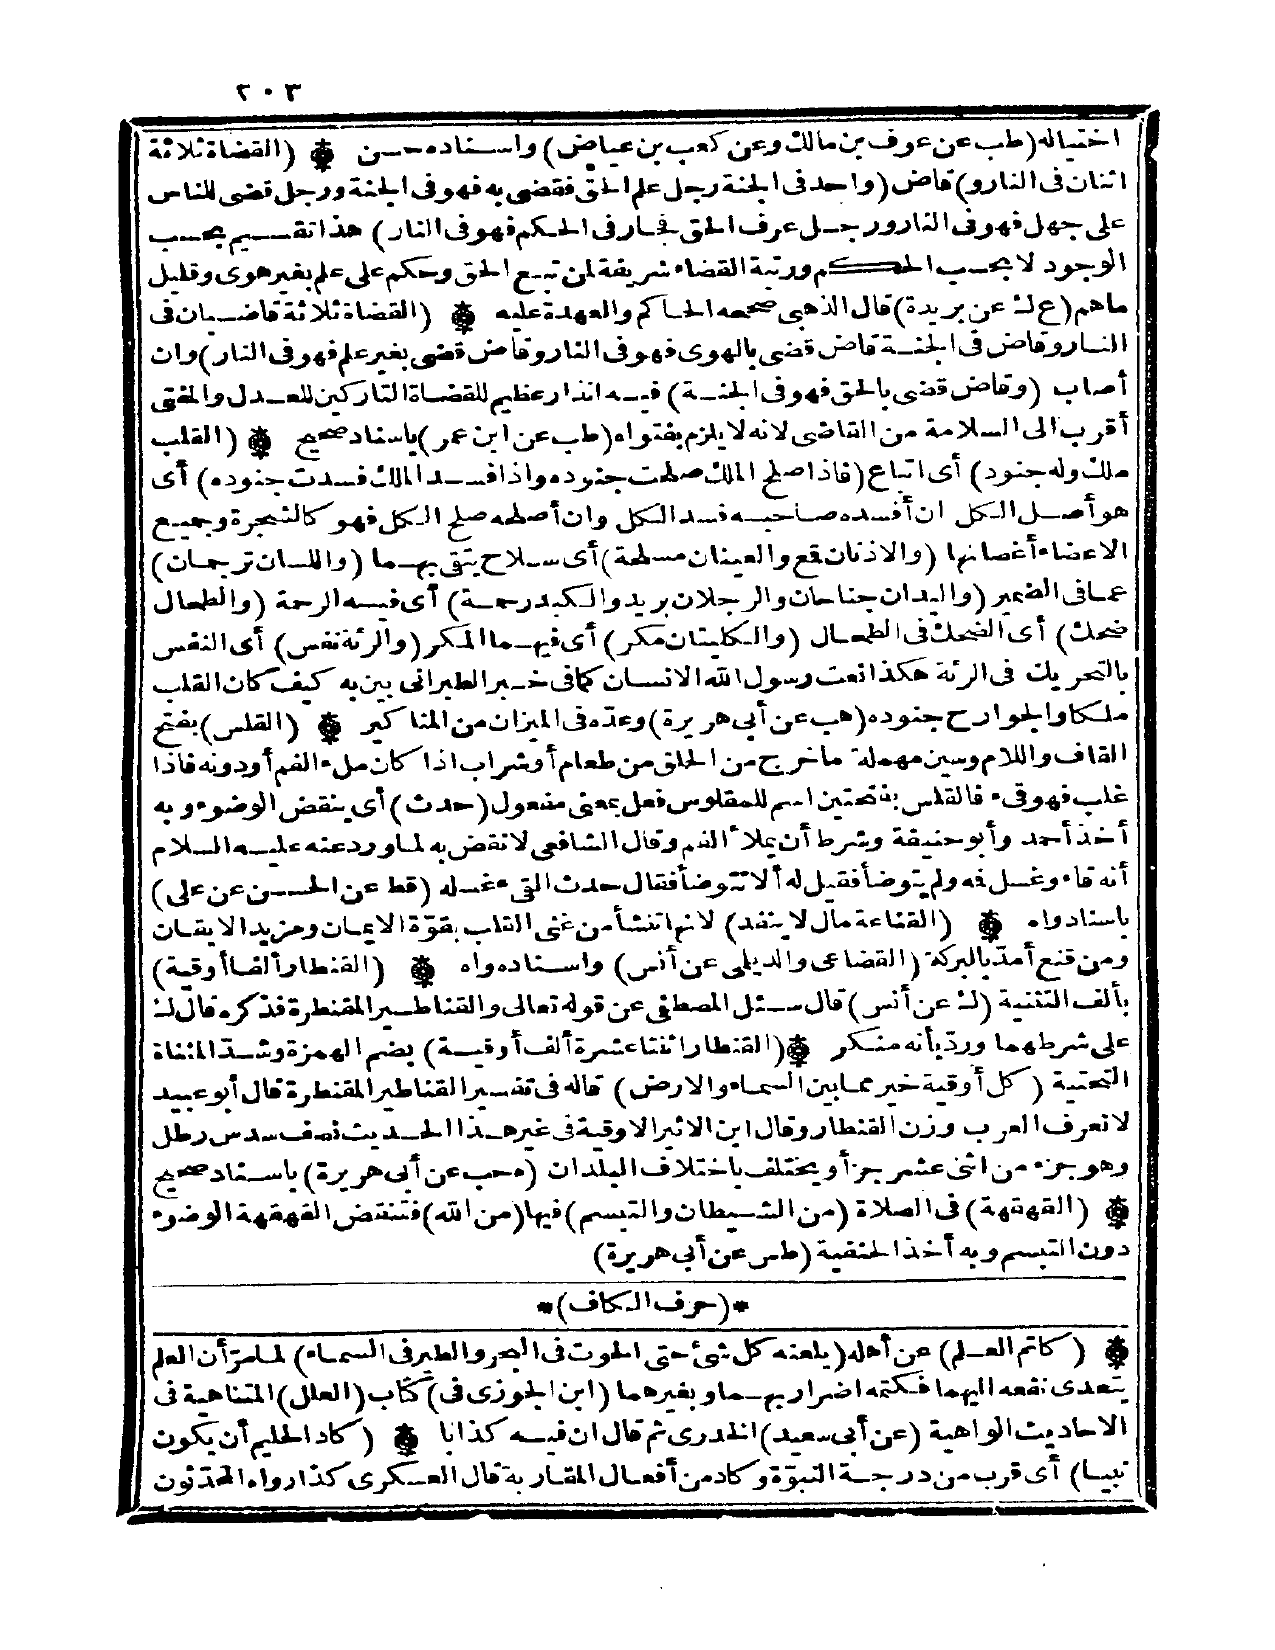 ٢٠٣
اختياله (طب عن عوف بن مالك وعن كعب بن عياض) واسناده حسن ۞ (القضاة ثلاثة
اثنان فى النار و) قاض (واحد فى الجنة رجل علم الحق فقضى به فهو فى الجنة ورجل قضى للناس
على جهل فهو فى النار ورجل عرف الحق فجار فى الحكم فهو فى النار) هذا تقسيم بحسب
الوجود لا بحسب الحكم ورتبة القضاء شريفة لمن تبع الحق وحكم على علم بغير هوى وقليل
ماهم (ع ك عن بريدة) قال الذهبى صححه الحاكم والعهدة عليه ۞ (القضاة ثلاثة قاضيان فى
النار وقاض فى الجنة قاض قضى بالهوى فهو فى النار وقاض قضى بغير علم فهو فى النار) وان
أصاب (وقاض قضى بالحق فهو فى الجنة) فيه انذار عظيم للقضاة التاركين للعدل والمفتى
أقرب الى السلامة من القاضى لانه لا يلزم بفتواه (طب عن ابن عمر) باسناد صحيح ۞ (القلب
ملك وله جنود) أى اتباع (فاذا صلح الملك صلحت جنوده واذا فسد الملك فسدت جنوده) أى
هو أصل الكل ان أفسده صاحبه فسد الكل وان أصلحه صلح الكل فهو كالشجرة وجميع
الاعضاء أغصانها (والاذنان قمع والعينان مسلحة) أى سلاح يتقى بهما (واللسان ترجمان)
عما فى الضمير (واليدان جناحان والرجلان بريد والكبد رحمة) أى فيه الرحمة (والطحال
ضحك) أى الضحك فى الطحال (والكليتان مكر) أى فيهما المكر (والرئة نفس) أى النفس
بالتحريك فى الرئة هكذا نعت رسول الله الانسان كما فى خبر الطبرانى بين به كيف كان القلب
ملكا والجوارح جنوده (هب عن أبى هريرة) وعده فى الميزان من المناكير ۞ (القلس) بفتح
القاف واللام وسين مهملة ما خرج من الحلق من طعام أو شراب اذا كان ملء الفم أو دونه فاذا
غلب فهو قىء فالقلس بفتحتين اسم للمقلوس فعل بمعنى مفعول (حدث) أى ينقض الوضوء وبه
أخذ أحمد وأبو حنيفة وشرط أن يملأ الفم وقال الشافعى لا نقض به لما ورد عنه عليه السلام
أنه قاء وغسل فه ولم يتوضأ فقيل له ألا تتوضأ فقال حدث القىء غسله (قط عن الحسين عن على)
باسناد واه ۞ (القناعة مال لا ينفد) لانها تنشأ من غنى القلب بقوة الايمان ومزيد الايقان
ومن قنع أمدّ بالبركة (القضاعى والديلى عن أنس) واسناده واه ۞ (القنطار ألفا أوقية)
بألف التثنية (ك عن أنس) قال سئل المصطفى عن قوله تعالى والقناطير المقنطرة فذكره قال ك
على شرطهما وردّ بأنه منكر ۞ (القنطار اثنتا عشرة ألف أوقية) بضم الهمزة وشد المثناة
التحتية (كل أوقية خير مما بين السماء والارض) قاله فى تفسير القناطير المقنطرة قال أبو عبيد
لا نعرف العرب وزن القنطار وقال ابن الاثير الاوقية فى غير هذا الحديث نصف سدس رطل
وهو جزء من اثنى عشر جزأ ويختلف باختلاف البلدان (ه حب عن أبى هريرة) باسناد صحيح
۞ (القهقهة) فى الصلاة (من الشيطان والتبسم) فيها (من الله) فتنقض القهقهة الوضوء
دون التبسم وبه أخذ الحنفية (طس عن أبى هريرة)
*(حرف الكاف)*
۞ (كاتم العلم) عن أهله (يلعنه كل شئ حتى الحوت فى البحر والطير فى السماء) لما مرّ أن العلم
يتعدى نفعه اليهما فكتمه اضرار بهما وبغيرهما (ابن الجوزى فى) كتاب (العلل) المتناهية فى
الاحاديث الواهية (عن أبى سعيد) الخدرى ثم قال ان فيه كذابا ۞ (كاد الحليم أن يكون
نبيا) أى قرب من درجة النبوّة وكاد من أفعال المقاربة قال العسكرى كذا رواه المحدّثون